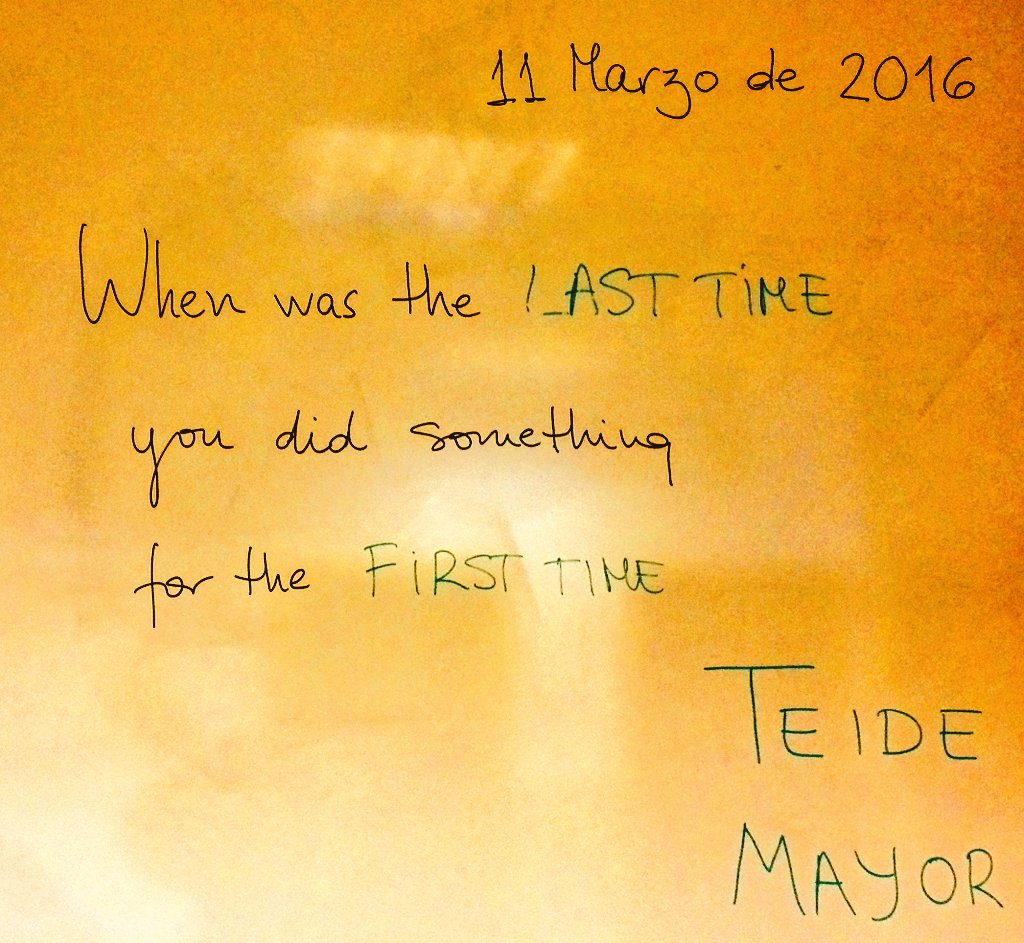 11 Marzo de 2016
When was the LAST TiME
you did something
for the FiRST TIME
TEIDE
MAYOR